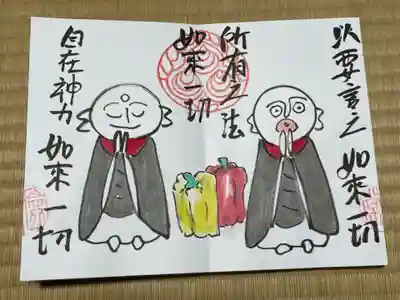 以要言之
如来一切
所有之法
如来一切
自在神力
如来一切